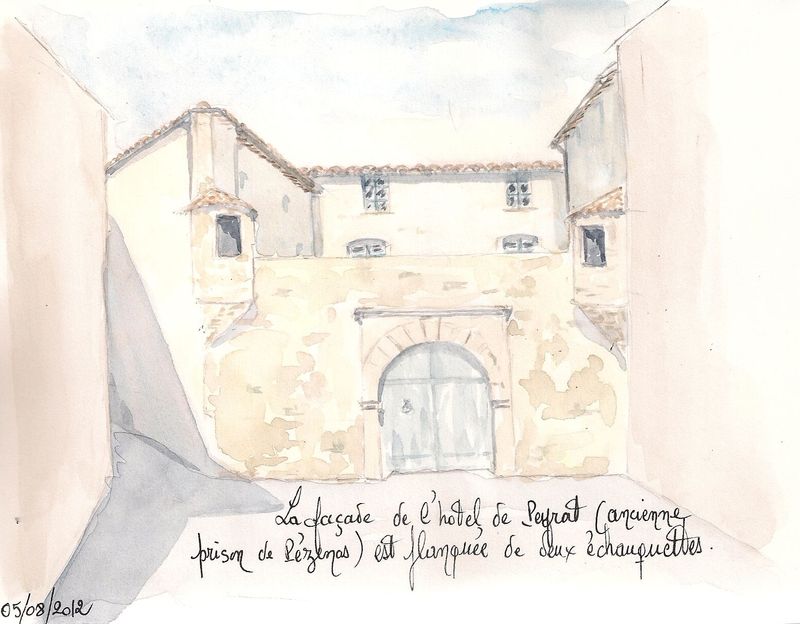 La façade de l'hotel de Peyrat (ancienne
prison de Pézenas) est flanquée de deux échauguettes.
05/08/2012